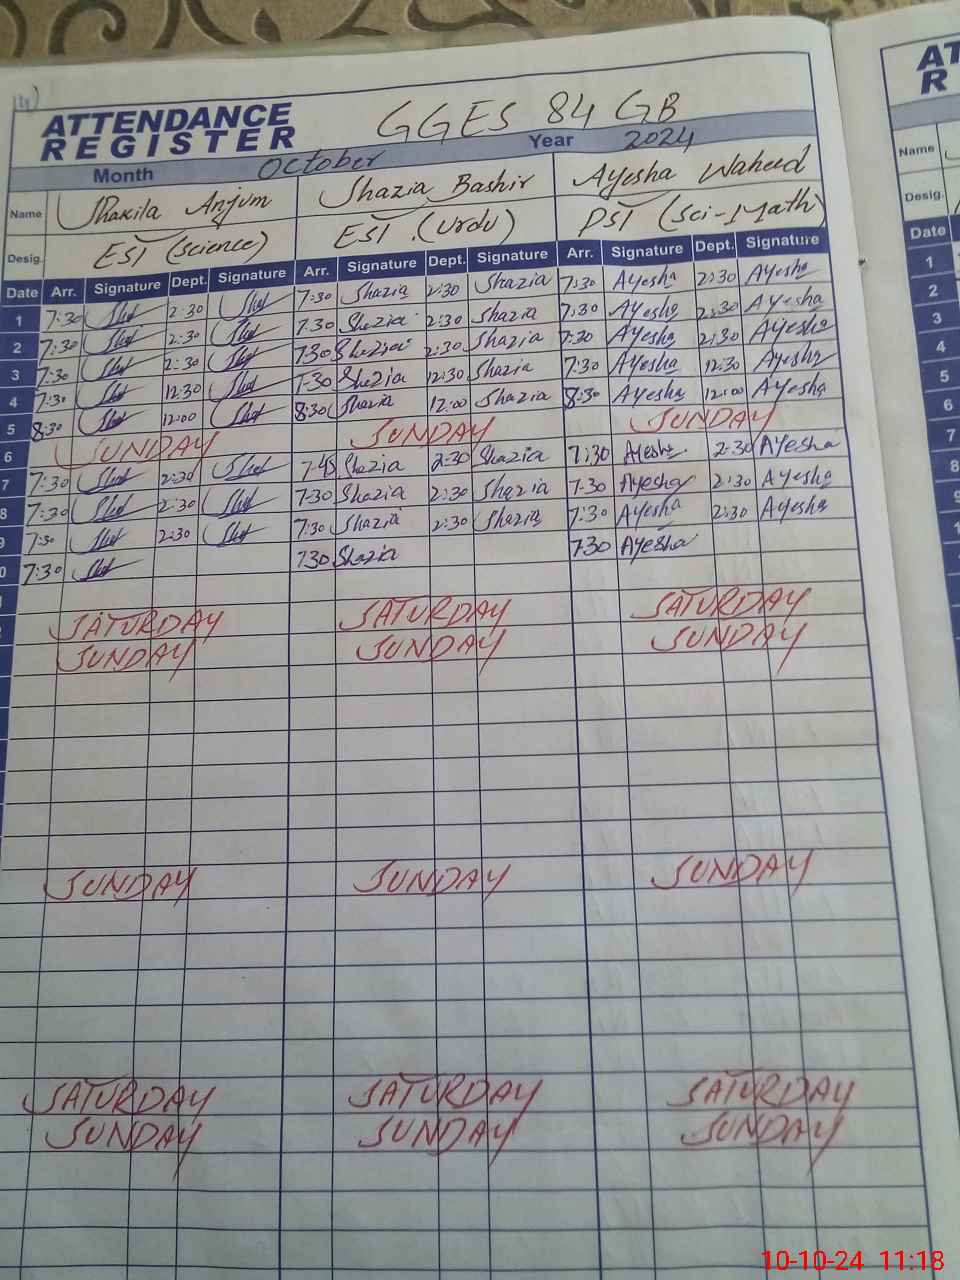 ATTENDANCE
REGISTER
GGES 84 GB
Month October Year 2024
Name Shakila Anjum Shazia Bashir Ayesha Waheed
Desig. EST (Science) EST (Urdu) PST (Sci-Math)
Date Arr. Signature Dept. Signature Arr. Signature Dept. Signature Arr. Signature Dept. Signature
1 7:30 2:30 7:30 Shazia 2:30 Shazia 7:30 Ayesha 2:30 Ayesha
2 7:30 2:30 7:30 Shazia 2:30 Shazia 7:30 Ayesha 2:30 Ayesha
3 7:30 2:30 7:30 Shazia 2:30 Shazia 7:30 Ayesha 2:30 Ayesha
4 7:30 12:30 7:30 Shazia 12:30 Shazia 7:30 Ayesha 12:30 Ayesha
5 8:30 12:00 8:30 Shazia 12:00 Shazia 8:30 Ayesha 12:00 Ayesha
6 SUNDAY SUNDAY SUNDAY
7 7:30 2:30 7:45 Shazia 2:30 Shazia 7:30 Ayesha 2:30 Ayesha
8 7:30 2:30 7:30 Shazia 2:30 Shazia 7:30 Ayesha 2:30 Ayesha
9 7:30 2:30 7:30 Shazia 2:30 Shazia 7:30 Ayesha 2:30 Ayesha
0 7:30 7:30 Shazia 7:30 Ayesha
SATURDAY SATURDAY SATURDAY
SUNDAY SUNDAY SUNDAY
SUNDAY SUNDAY SUNDAY
SATURDAY SATURDAY SATURDAY
SUNDAY SUNDAY SUNDAY
AT
R
Name
Desig.
Date
1
2
3
4
5
6
7
8
9
1
10-10-24 11:18